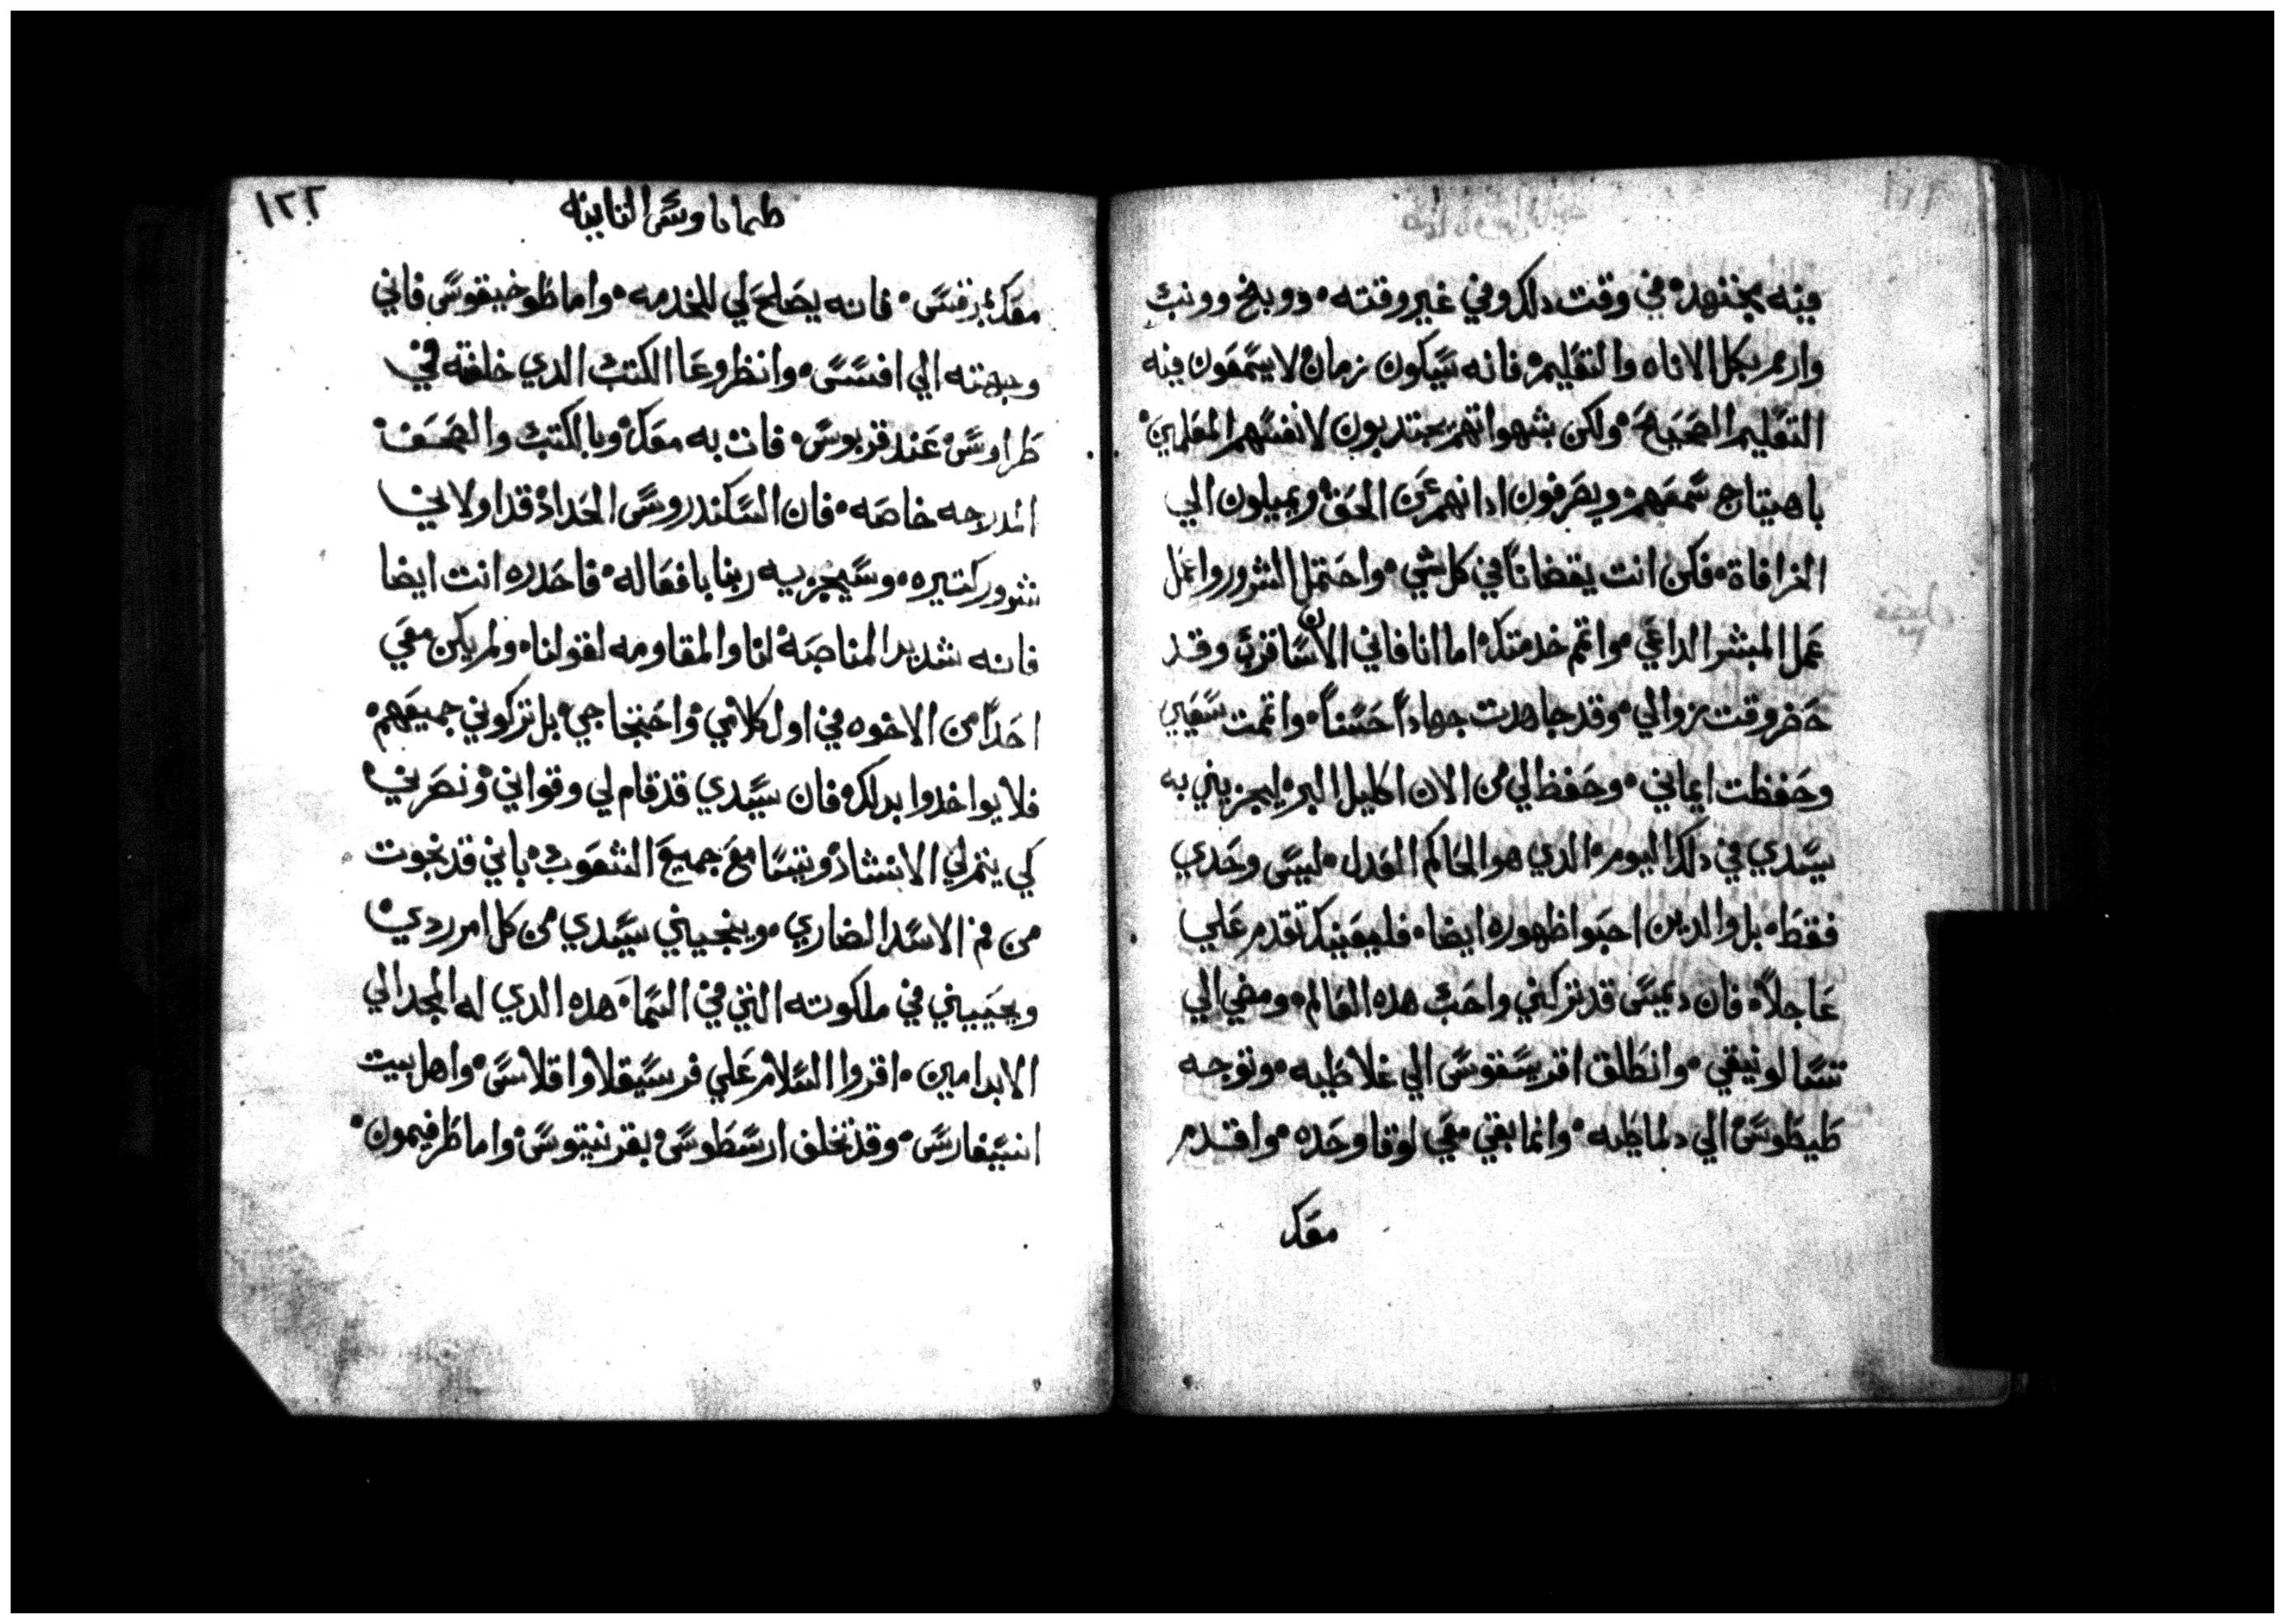 فيه بجتهده في وقت دلك وفي غير وقته، ووبخ وونب
وازمر بكل الاناه والتعليم، فانه سيكون زمان لا يسمعون فيه
التعليم الصحيح، ولكن بشهواتهم يجتدبون لانفسهم المعلمين
باهتياج سمعهم، ويصرفون ادانهم عن الحق، ويميلون الي
الخرافاة، فكن انت يقضانا في كل شي، واحتمل الشرور واعمل
عمل المبشر الداعي، واتم خدمتك، اما انا فاني الان اساقرب وقد
حضر وقت زوالي، وقد جاهدت جهادا حسنا، واتممت سعيي
وحفظت ايماني، وحفظ لي من الان اكليل البر، ليجزيني به
سيدي في دلك اليوم، الدي هو الحاكم العدل، ليس وحدي
فقط، بل والدين احبوا ظهوره ايضا، فليعنيك تقدم علي
عاجلا، فان ديمس قد تركني واحب هده العالم، ومضي الي
تسالونيقي، وانطلق اقريسقوس الي غلاطيه، وتوجه
طيطوس الي دلماطيه، وانما بقي معي لوقا وحده، واقدم
معك
١٢٢
طيماتاوس التانيه
معك مرقس، فانه يصلح لي للخدمه، واما طوخيقوس فاني
وجهته الي افسس، وانظر وعا الكتب الدي خلفته في
طراوس عند قربوس، فات به معك، وبالكتب والصحف
المدرجه خاصه، فان السكندروس الحداد قد اولاني
شرور كتيره، وسيجزيه ربنا بافعاله، فاحدره انت ايضا
فانه شديد المناصبه لنا والمقاومه لقولنا، ولم يكن معي
احدا من الاخوه في اول كلامي، واحتجاجي، بل تركوني جميعهم
فلا يواخدوا بدلك، فان سيدي قد قام لي وقواني، ونصرني
كي يتم لي الانشاد وتتسامع جميع الشعوب، باني قد نجوت
من فم الاسد الضاري، وينجيني سيدي من كل امر ردي
ويحييني في ملكوته التي في السما، هده الدي له المجد الي
الابد امين، اقروا السلام علي فرسيقلا واقلاس، واهل بيت
انسيفارس، وقد تخلف ارسطوس بقرنيتوس، واما طرفيمون